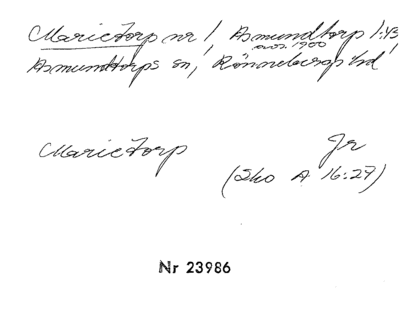 Marietorp nr 1, Asmundtorp 1:43
avs. 1900
Asmundtorps sn, Rönnebergs hd
Marietorp Jr
(Sko A 16:27)
Nr 23986